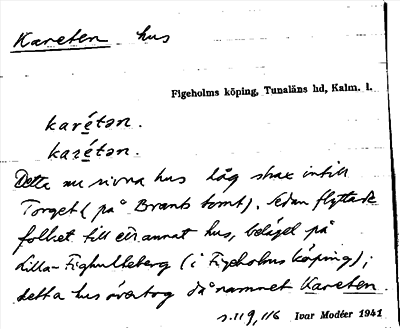 Kareten hus
Figeholms köping, Tunaläns hd, Kalm. l.
karétən.
karétən.
Detta nu rivna hus låg strax intill
Torget (på Brants tomt). Sedan flyttade
folket till ett annat hus, beläget på
Lilla-Fighulteberg (i Figeholms köping);
detta hus övertog då namnet Kareten.
s. 119, 116 Ivar Modéer 1941